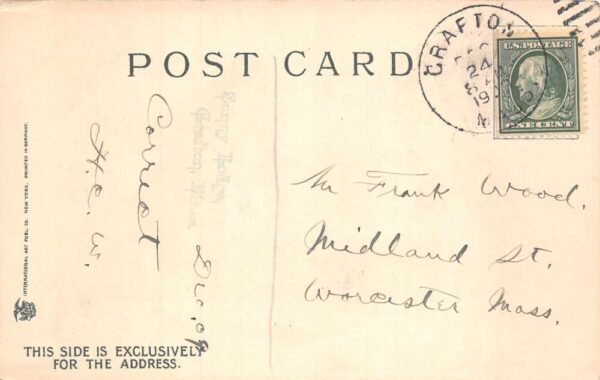 POST CARD
GRAFTON
DEC
24
8 AM
19
MASS.
U.S. POSTAGE
ONE CENT
Sunny Lodge
Grafton, Mass
Correct
H. C. W.
Dec. 09
Mr Frank Wood.
Midland St.
Worcester Mass.
INTERNATIONAL ART PUBL. CO. NEW YORK. PRINTED IN GERMANY.
THIS SIDE IS EXCLUSIVELY
FOR THE ADDRESS.